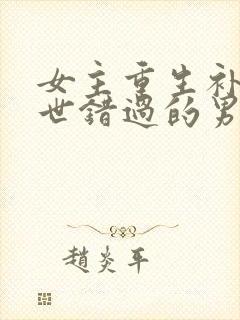 女主重生补
世错过的男
趙炎平